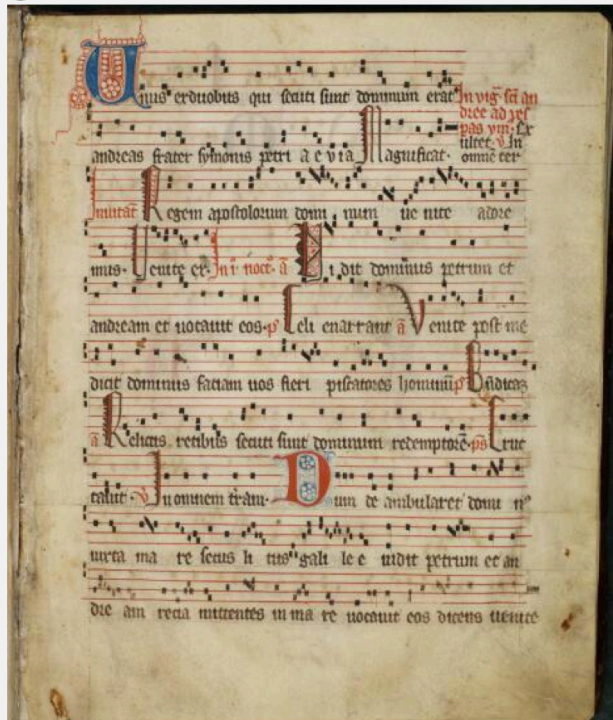 Unus exduobus qui secuti sunt dominum erat In vig sci an
dree ad ves
pas ym Ex
ultet ℣ In
andreas frater symonis petri a e v i a Magnificat omnē ter
Invitat Regem apostolorum domi num ve nite adore
mus Venite ex In i noct ā Vidit dominus petrum et
andream et vocavit eos p Celi enarrant ā Venite post me
dicit dominus faciam vos fieri piscatores hominū p Bndicā
ā Relictis retibus secuti sunt dominum redemptorē ps Eruc
tavit ℣ In omnem tram Dum de ambularet domi nꝰ
iuxta ma re secus li tus gali le e vidit petrum et an
dre am recia mittentes in ma re vocavit eos dicens venite